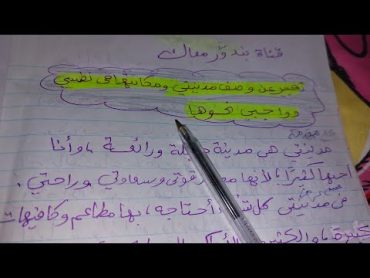 قناة بندوّر معاك
تعبير عن وصف مدينتي ومكانتها في نفسي
وواجبي نحوها
مدينتي هي مدينة جميلة ورائعة، وأنا
أحبها كثيرًا، لأنها مصدر قوتي وسعادتي وراحتي.
في مدينتي كل شيء أحتاجه، بها مطاعم وكافيهات
كبيرة،